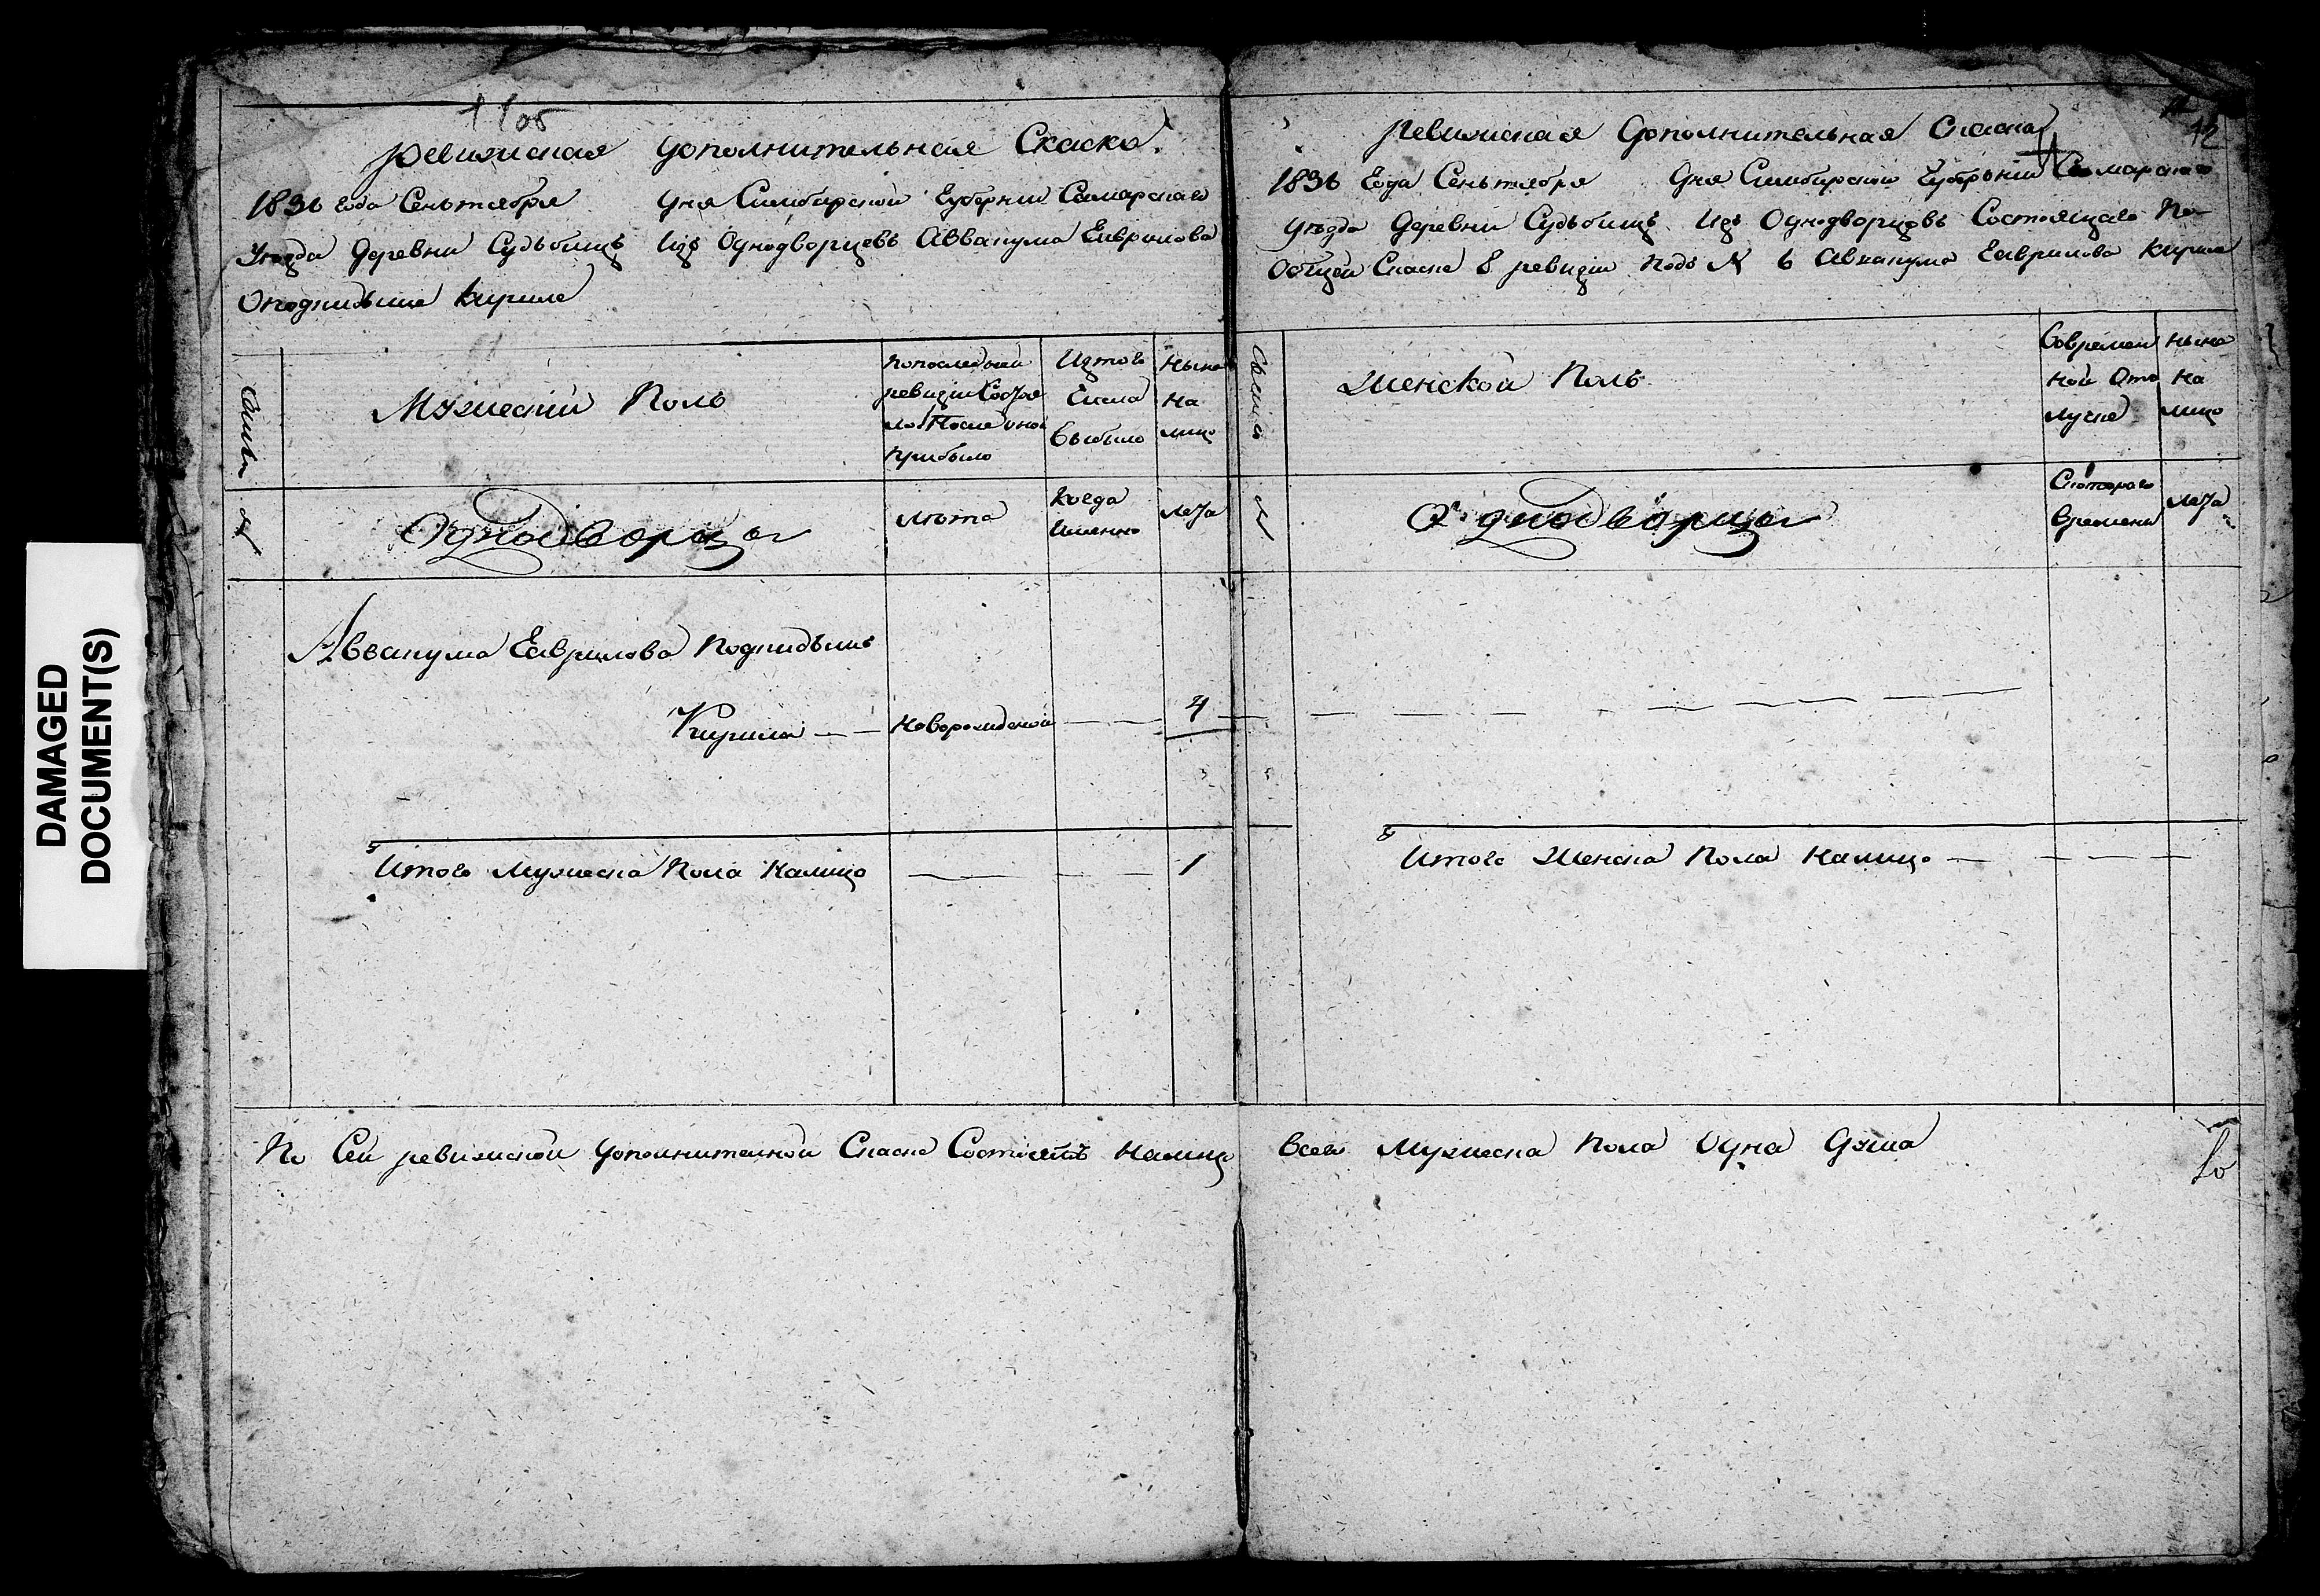 DAMAGED
DOCUMENT(S)
11об
Ревижская дополнительная Скаска.
1836 года Сеньтября дня Симбирской Губернии Самарскаго
Уезда Деревни Судьбищъ Изъ Однодворцевъ Аввакума Гаврилова
О подкидыше Кириле
Семьи
№
Мужеский Полъ
По последней
ревизии Состоя
ло И после оной
прибыло
Изтого
Числа
выбыло
Ныне
на
лицо
Однодворцы
Лета
Когда
Именно
Лета
Аввакума Гаврилова Подкидышъ
Кирила — — Новорожденой — — 4
Итого Мужеска Пола налицо — — — 1
По Сей ревижской дополнительной Скаске Состоитъ налицо
12
Ревижская Дополнительная Скаска
1836 Года Сеньтября Дня Симбирской Губернии Самарскаго
уезда Деревни Судьбищъ Изъ Однодворцовъ Состоящаго По
Общей Скаске 8 ревизии Подъ № 6 Авакума Гаврилова Кирила
Семьи
№
Женской Полъ
Во времен
ной Отлучке
Ныне
На
лицо
Однодворцы
Скотораго
Времени
Лета
Итого Женска Пола Налицо — — — —
Всего Мужеска Пола Одна Душа